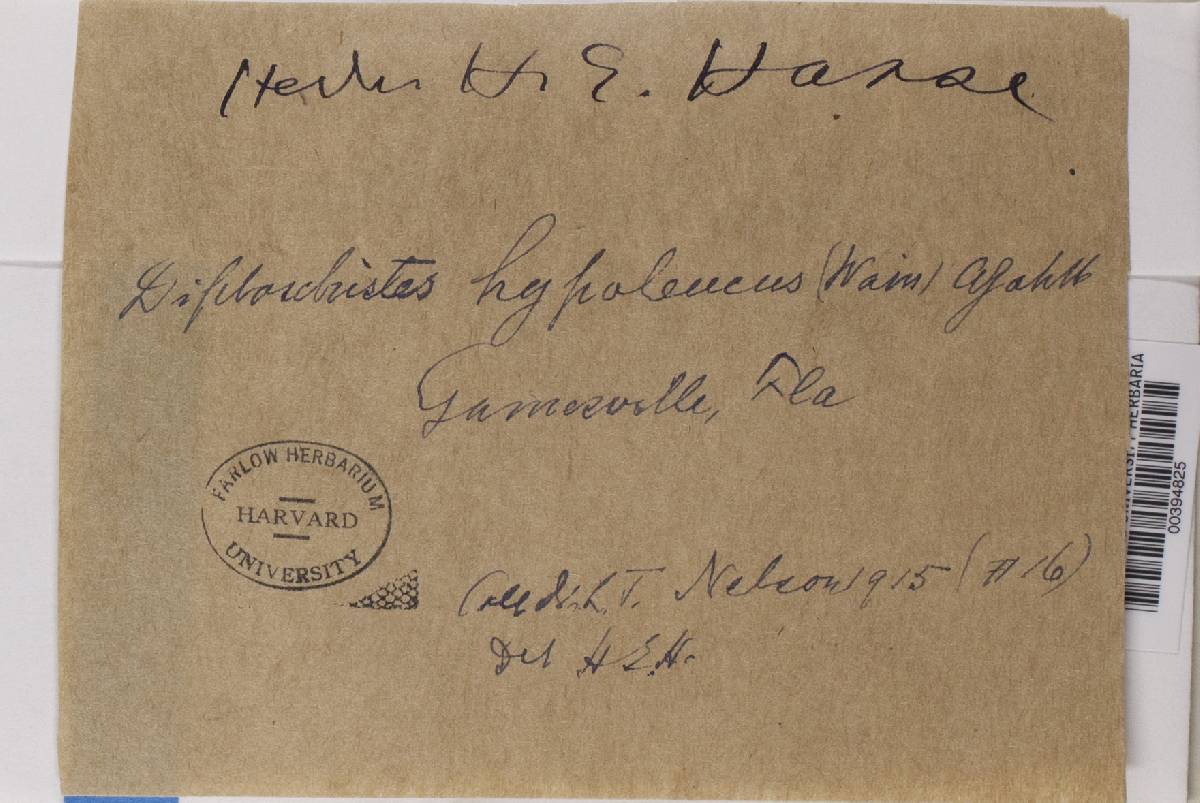 Herb. H. E. Hasse
Diploschistes hypoleucus (Wain) A Zahlb
Gainesville, Fla
FARLOW HERBARIUM
HARVARD
UNIVERSITY
Coll T. Nelson 1915 (#16)
Det H.E.H.
UNIVERSITY HERBARIA
00394825